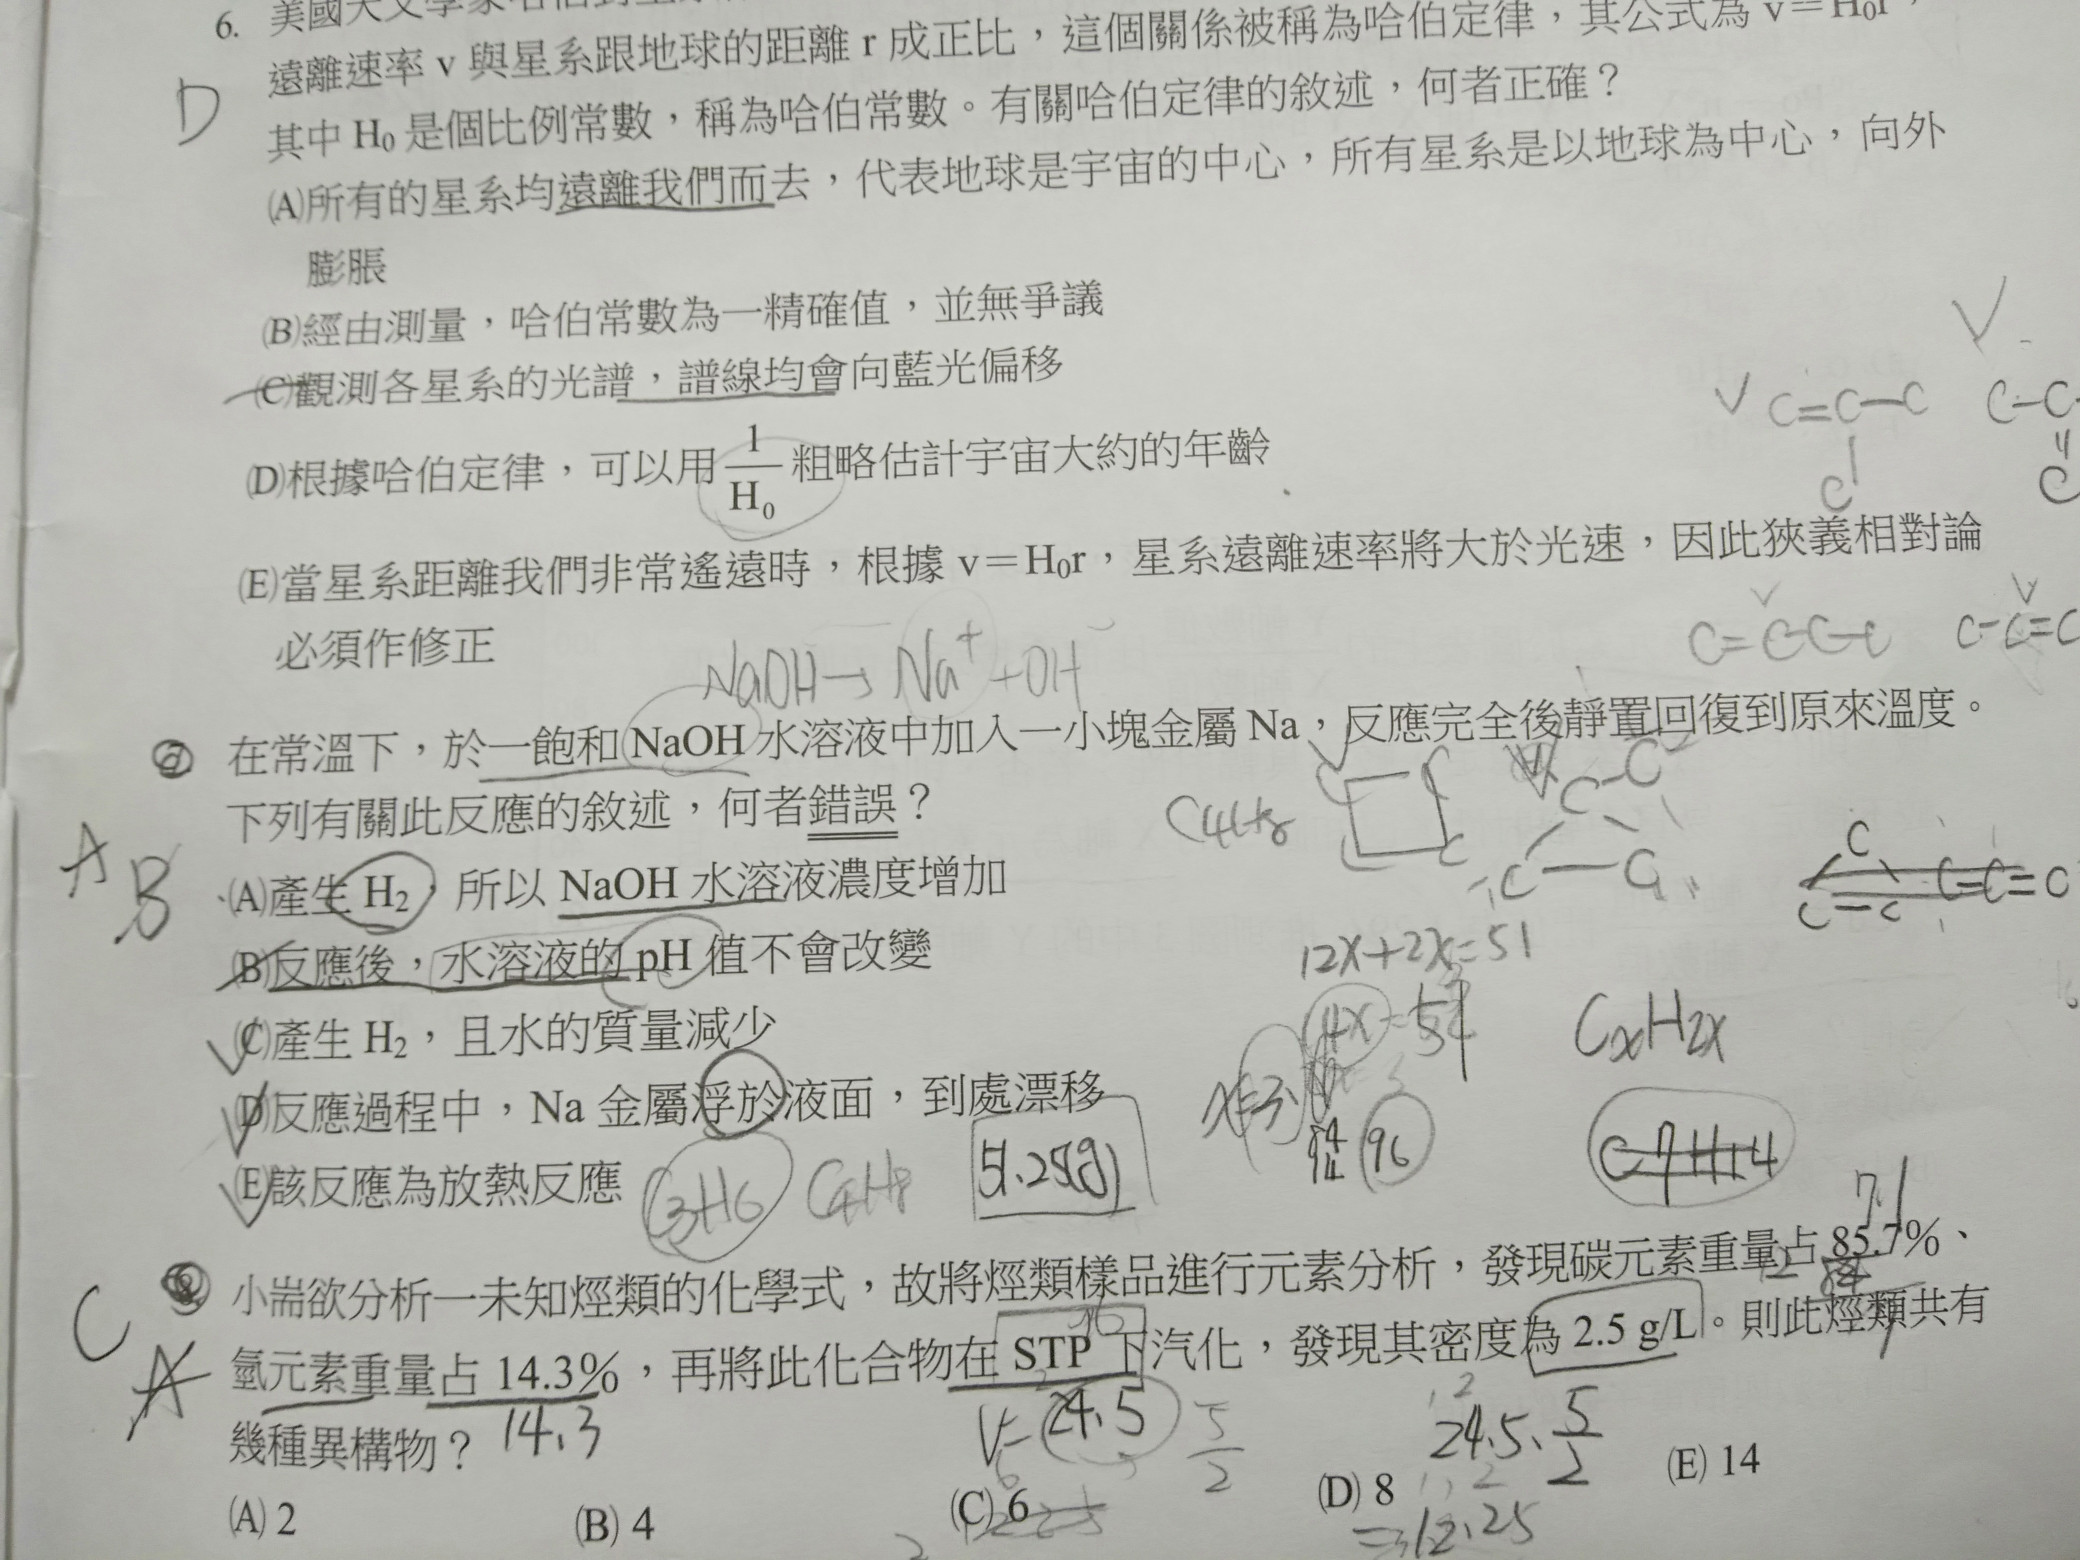 6. 美國天文學家哈伯對星系
遠離速率 v 與星系跟地球的距離 r 成正比，這個關係被稱為哈伯定律，其公式為 v＝H₀r，
D
其中 H₀ 是個比例常數，稱為哈伯常數。有關哈伯定律的敘述，何者正確？
(A)所有的星系均遠離我們而去，代表地球是宇宙的中心，所有星系是以地球為中心，向外
膨脹
(B)經由測量，哈伯常數為一精確值，並無爭議
(C)觀測各星系的光譜，譜線均會向藍光偏移
C=C-C
C
C-C
C
(D)根據哈伯定律，可以用 1/H₀ 粗略估計宇宙大約的年齡
(E)當星系距離我們非常遙遠時，根據 v＝H₀r，星系遠離速率將大於光速，因此狹義相對論
必須作修正
C=C-C-C
C-C=C
NaOH→Na⁺+OH⁻
7 在常溫下，於一飽和 NaOH 水溶液中加入一小塊金屬 Na，反應完全後靜置回復到原來溫度。
下列有關此反應的敘述，何者錯誤？
C4H8
A B
(A)產生 H₂，所以 NaOH 水溶液濃度增加
(B)反應後，水溶液的 pH 值不會改變
12x+2x=51
(C)產生 H₂，且水的質量減少
14x=51
CxH2x
(D)反應過程中，Na 金屬浮於液面，到處漂移
96
C7H14
(E)該反應為放熱反應
C3H6 C4H8
51.25(g)
7.1
C A
小耑欲分析一未知烴類的化學式，故將烴類樣品進行元素分析，發現碳元素重量占 85.7%、
氫元素重量占 14.3%，再將此化合物在 STP 下汽化，發現其密度為 2.5 g/L。則此烴類共有
幾種異構物？
14.3
V=24.5
5/2
24.5.5/2
(A) 2 (B) 4 (C) 6 (D) 8 (E) 14